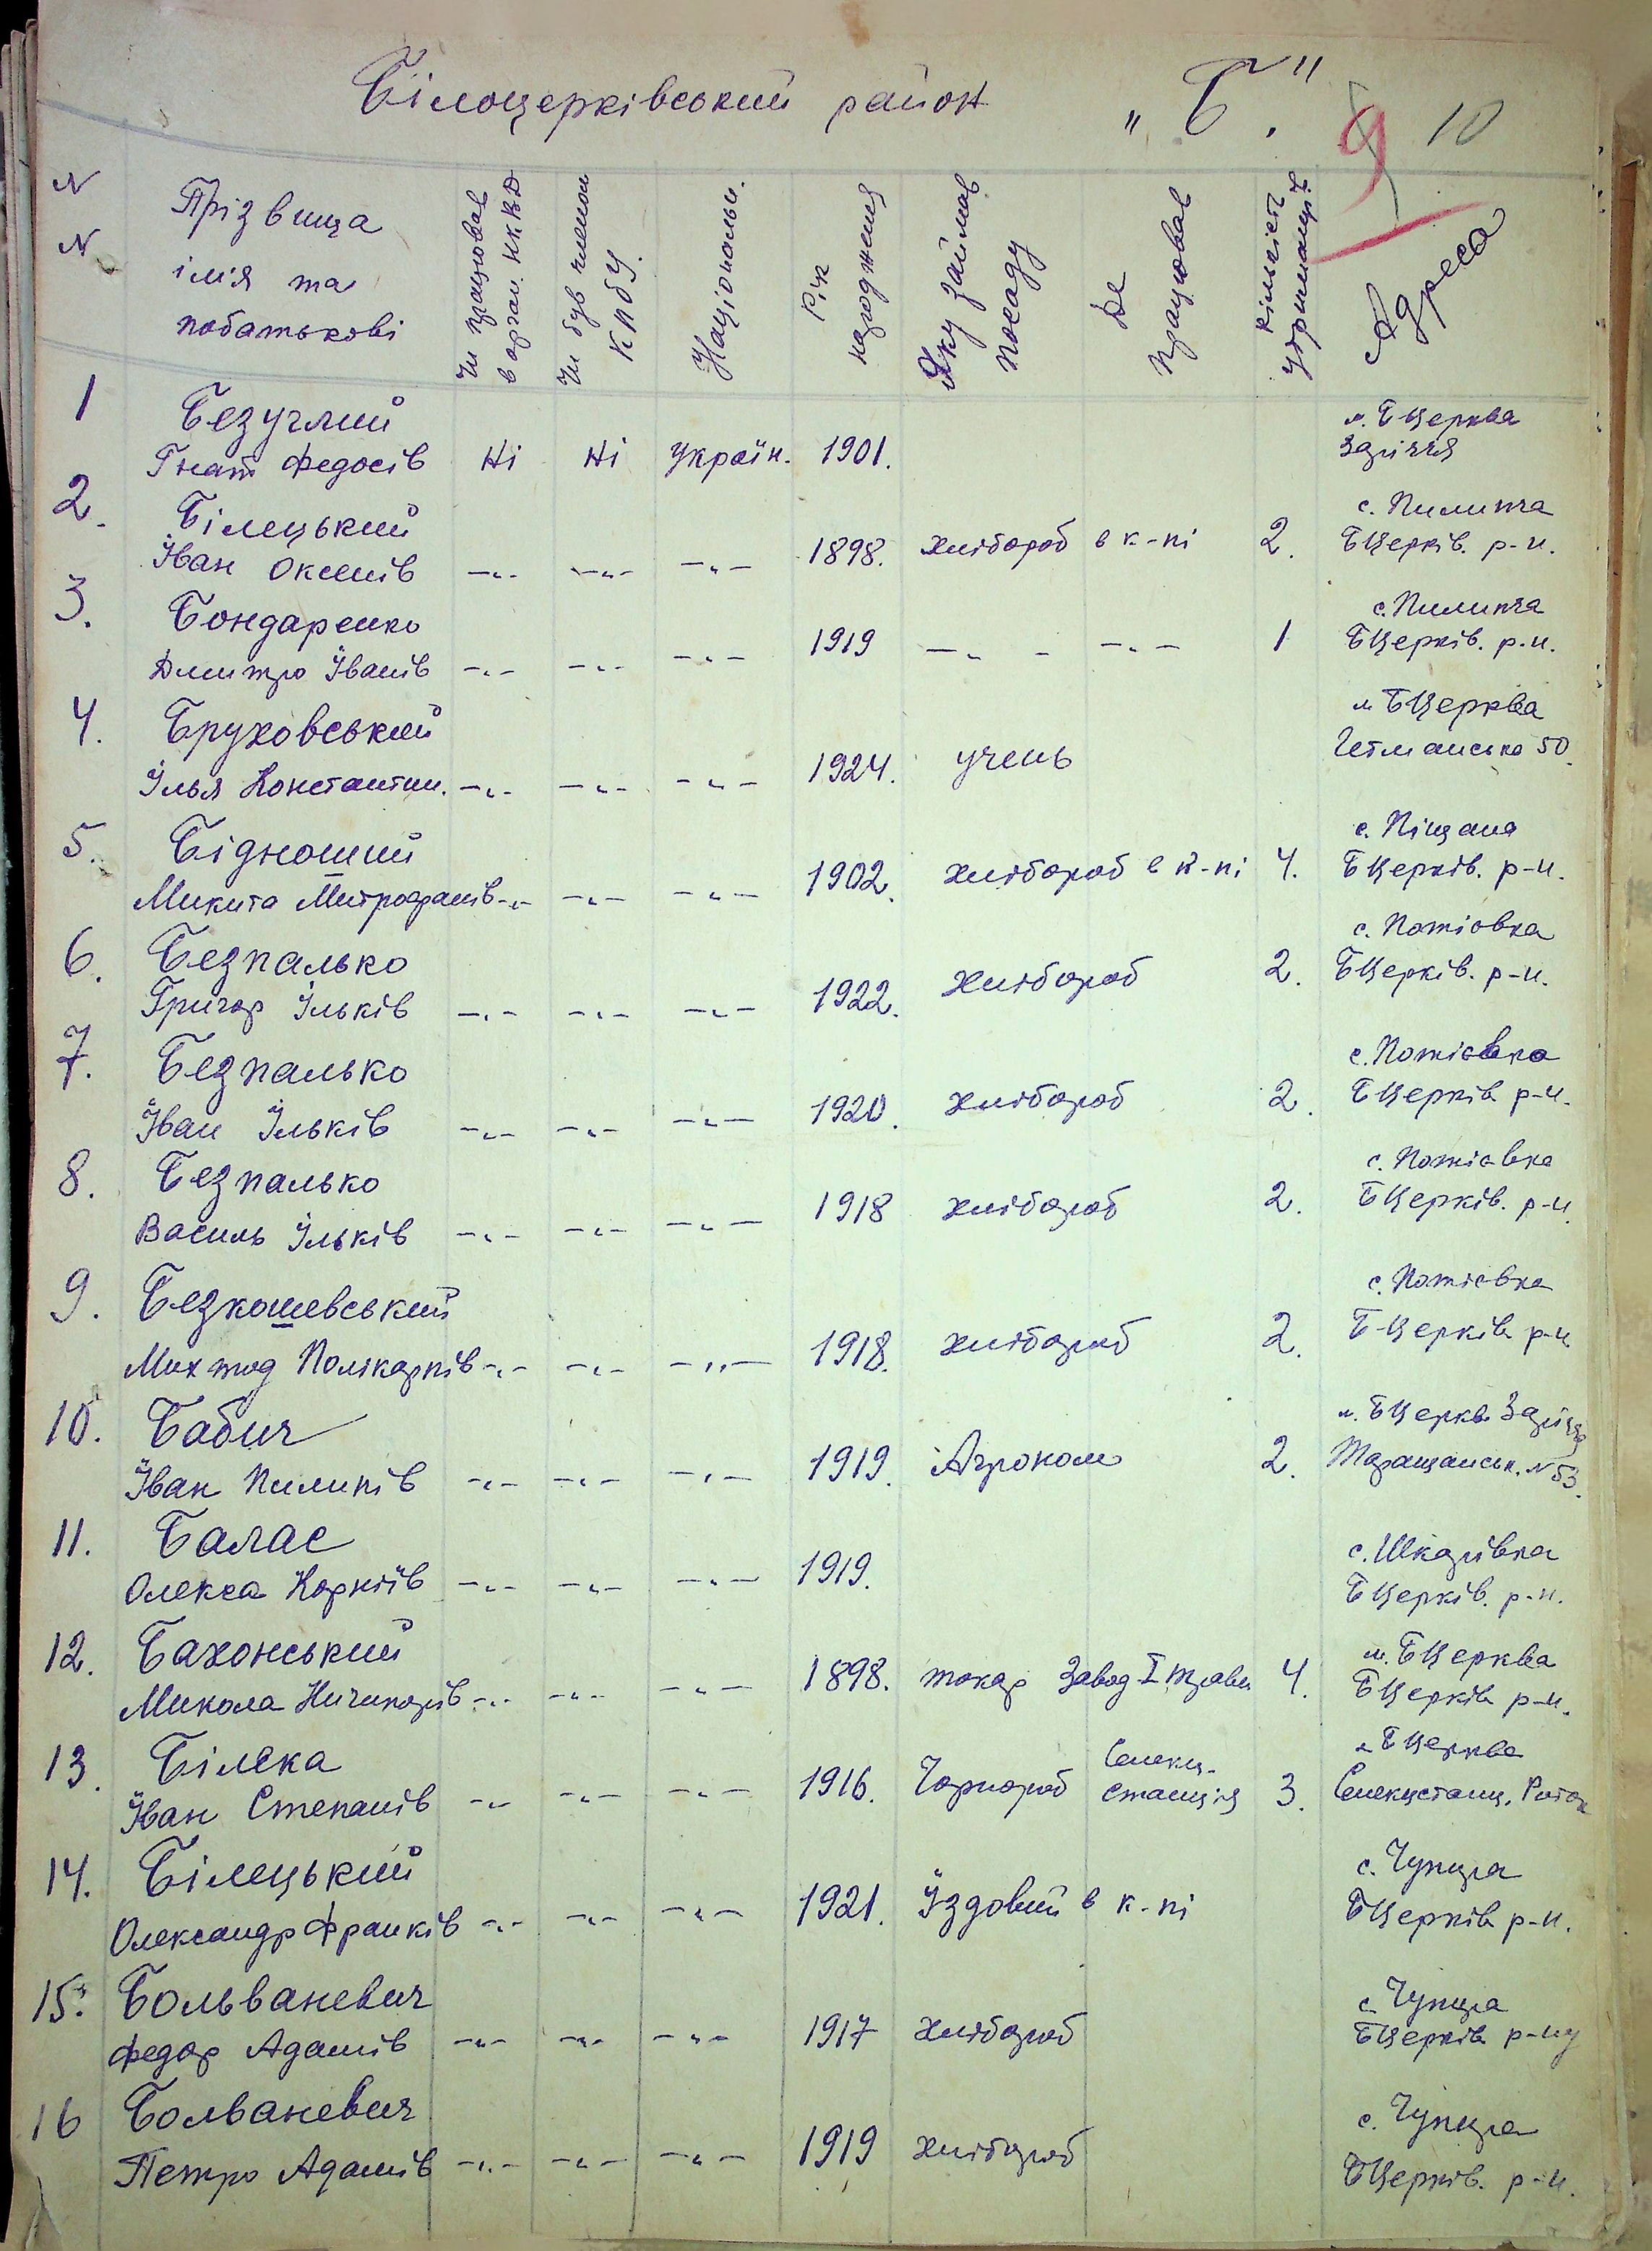 Білоцерківський район „Б."
9 10
N N
Прізвища імія та побатькові
Чи працював в орган. НКВД
Чи був членом КПбУ.
Національн.
Рік народження
Яку займав посаду
Де працював
Кількість утриманців
Адреса
1 Безуглий м. БЦерква
Гнат Федосів Ні Ні Україн. 1901. Заріччя
2. Білецький с. Пилипча
Іван Оксенів —„— —„— —„— 1898. хлібороб в к-пі 2. БЦерків. р-н.
3. Бондаренко с. Пилипча
Дмитро Іванів —„— —„— —„— 1919 —„— —„— 1 БЦерків. р-н.
4. Бруховський м БЦерква
Ілья Константин. —„— —„— —„— 1924. учень Гетманська 50.
5. Бідноший с. Піщана
Микита Митрофанів —„— —„— —„— 1902. хлібороб в к-пі 4. БЦерків. р-н.
6. Безпалько с. Потіовка
Григор Ільків —„— —„— —„— 1922. хлібороб 2. БЦерків. р-н.
7. Безпалько с. Потієвка
Іван Ільків —„— —„— —„— 1920. хлібороб 2. БЦерків р-н.
8. Безпалько с. Потієвка
Василь Ільків —„— —„— —„— 1918 хлібороб 2. БЦерків. р-н.
9. Безкошевський с. Потієвка
Полікарпів —„— —„— —„— 1918. хлібороб 2. БЦерків р-н
10. Бабич м. БЦерква Заріччя
Іван Пилипів —„— —„— —„— 1919. Агроном 2. Таращанськ. N 53.
11. Балас с. Шкарівка
Олекса Корніїв —„— —„— —„— 1919. БЦерків. р-н.
12. Бахонський м. БЦерква
Микола Ничипорів —„— —„— —„— 1898. токар Завод I травн 4. БЦерків р-н.
13. Білека м БЦерква
Іван Степанів —„— —„— —„— 1916. Чорнороб Селекц. станція 3. Селекцстанц. Роток
14. Білецький с. Чупира
Олександр Франків —„— —„— —„— 1921. Їздовий в к-пі БЦерків р-н.
15. Больваневич с Чупира
Федор Адамів —„— —„— —„— 1917 хлібороб БЦерків р-ну
16 Болваневич с. Чупира
Петро Адамів —„— —„— —„— 1919 хлібороб БЦерків. р-н.